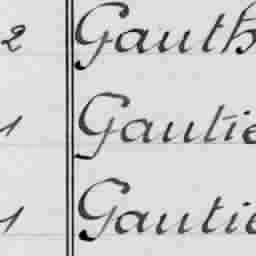 2 Gauth
1 Gautie
1 Gautie